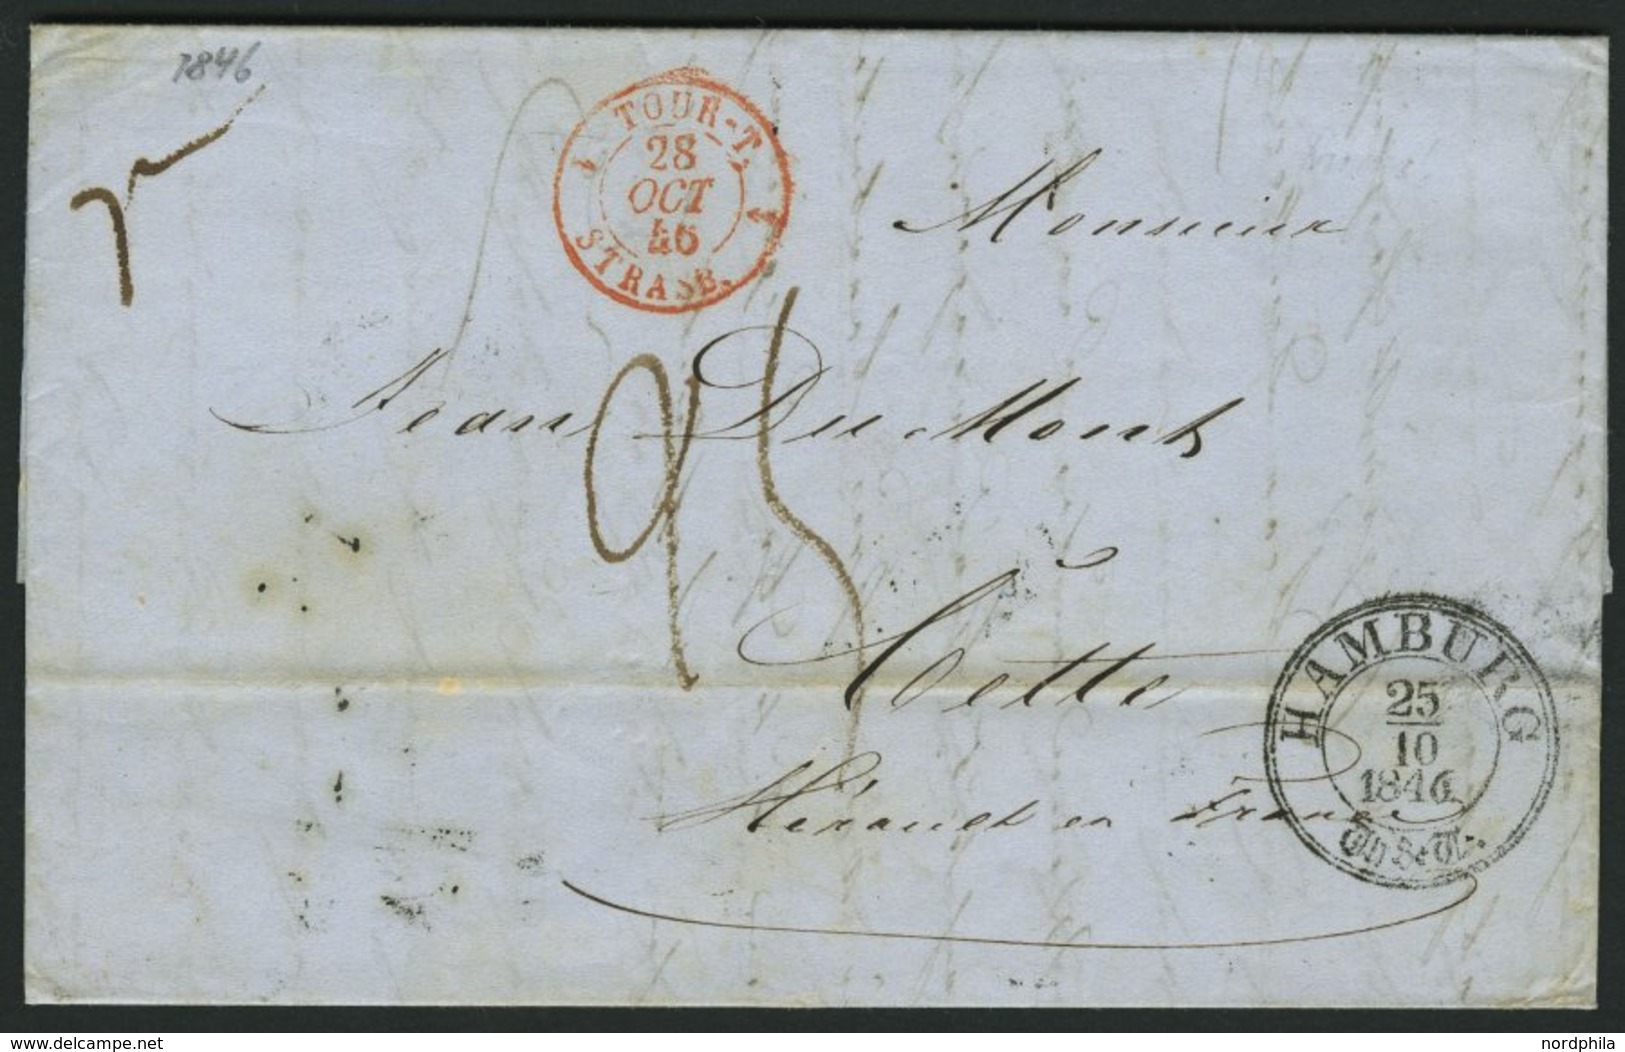 1846
TOUR-T.
28
OCT
46
STRASB.
Monsieur
Jean Du Mont
25
Cette
Hérault en France
HAMBURG
25
10
1846
Th & T.
www.delcampe.net
nordphila